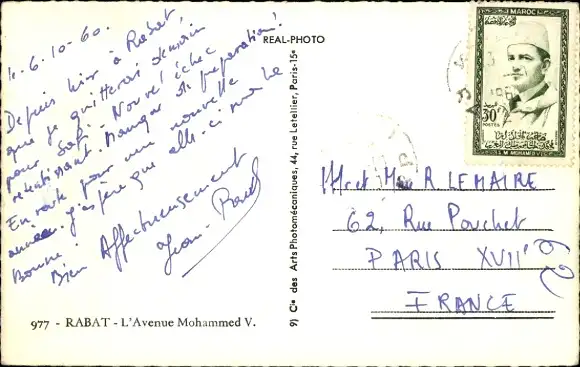 4.6.10-60.
Depuis hier à Rabat,
que je quitterai demain
pour Safi. Nouvel échec
retentissant. Manque de préparation!
En route pour une nouvelle
année. J'espère que celle-ci sera la
Bonne!
Bien Affectueusement
Jean-
REAL-PHOTO
9) Cie des Arts Photomécaniques, 44, rue Letellier, Paris-15e
977 - RABAT - L'Avenue Mohammed V.
MAROC
30F
POSTES
S.M. MOHAMMED V
Mr et Mme R LEMAIRE
62, Rue Pouchet
PARIS XVIIe
FRANCE